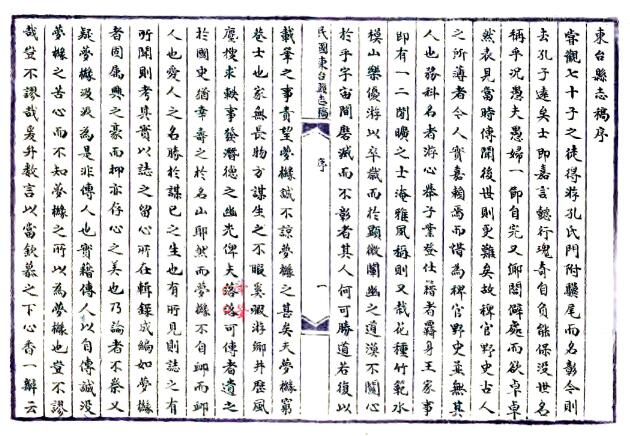 東台縣志稿序
嘗觀七十子之徒得游孔氏門附驥尾而名彰今則
去孔子遠矣士即嘉言懿行瑰奇自負能保沒世名
稱乎況愚夫愚婦一節自完又鄉閭僻處而欲卓卓
然表見當時傳聞後世則更難矣故稗官野史古人
之所薄者今人實嘉賴焉而惜為稗官野史莫無其
人也務科名者游心舉子業登仕籍者羈身王家事
即有一二閒曠之士淹雅風稱則又栽花種竹範水
模山樂優游以卒歲而於顯微闡幽之道漠不關心
於乎宇宙間磨滅而不彰者其人何可勝道若復以
民國東台縣志稿 序 一
載筆之事責望夢誠不諒夢之甚矣夫夢窮
巷士也家無長物方謀生之不暇奚暇游鄉井歷風
塵搜求軼事發潛德之幽光俾夫落落可傳者遺之
於國史猶幸壽之於名山耶然而夢不自卹而卹
人也愛人之名勝於謀已之生也有所見則誌之有
所聞則考其實以誌之留心所在輯錄成編如夢
者固屬興之豪而抑亦存心之美也乃論者不察又
疑夢汲汲為是非傳人也實藉傳人以自傳誠沒
夢之苦心而不知夢之所以為夢也豈不謬
哉豈不謬哉爰升教言以當欽慕之下心香一瓣云